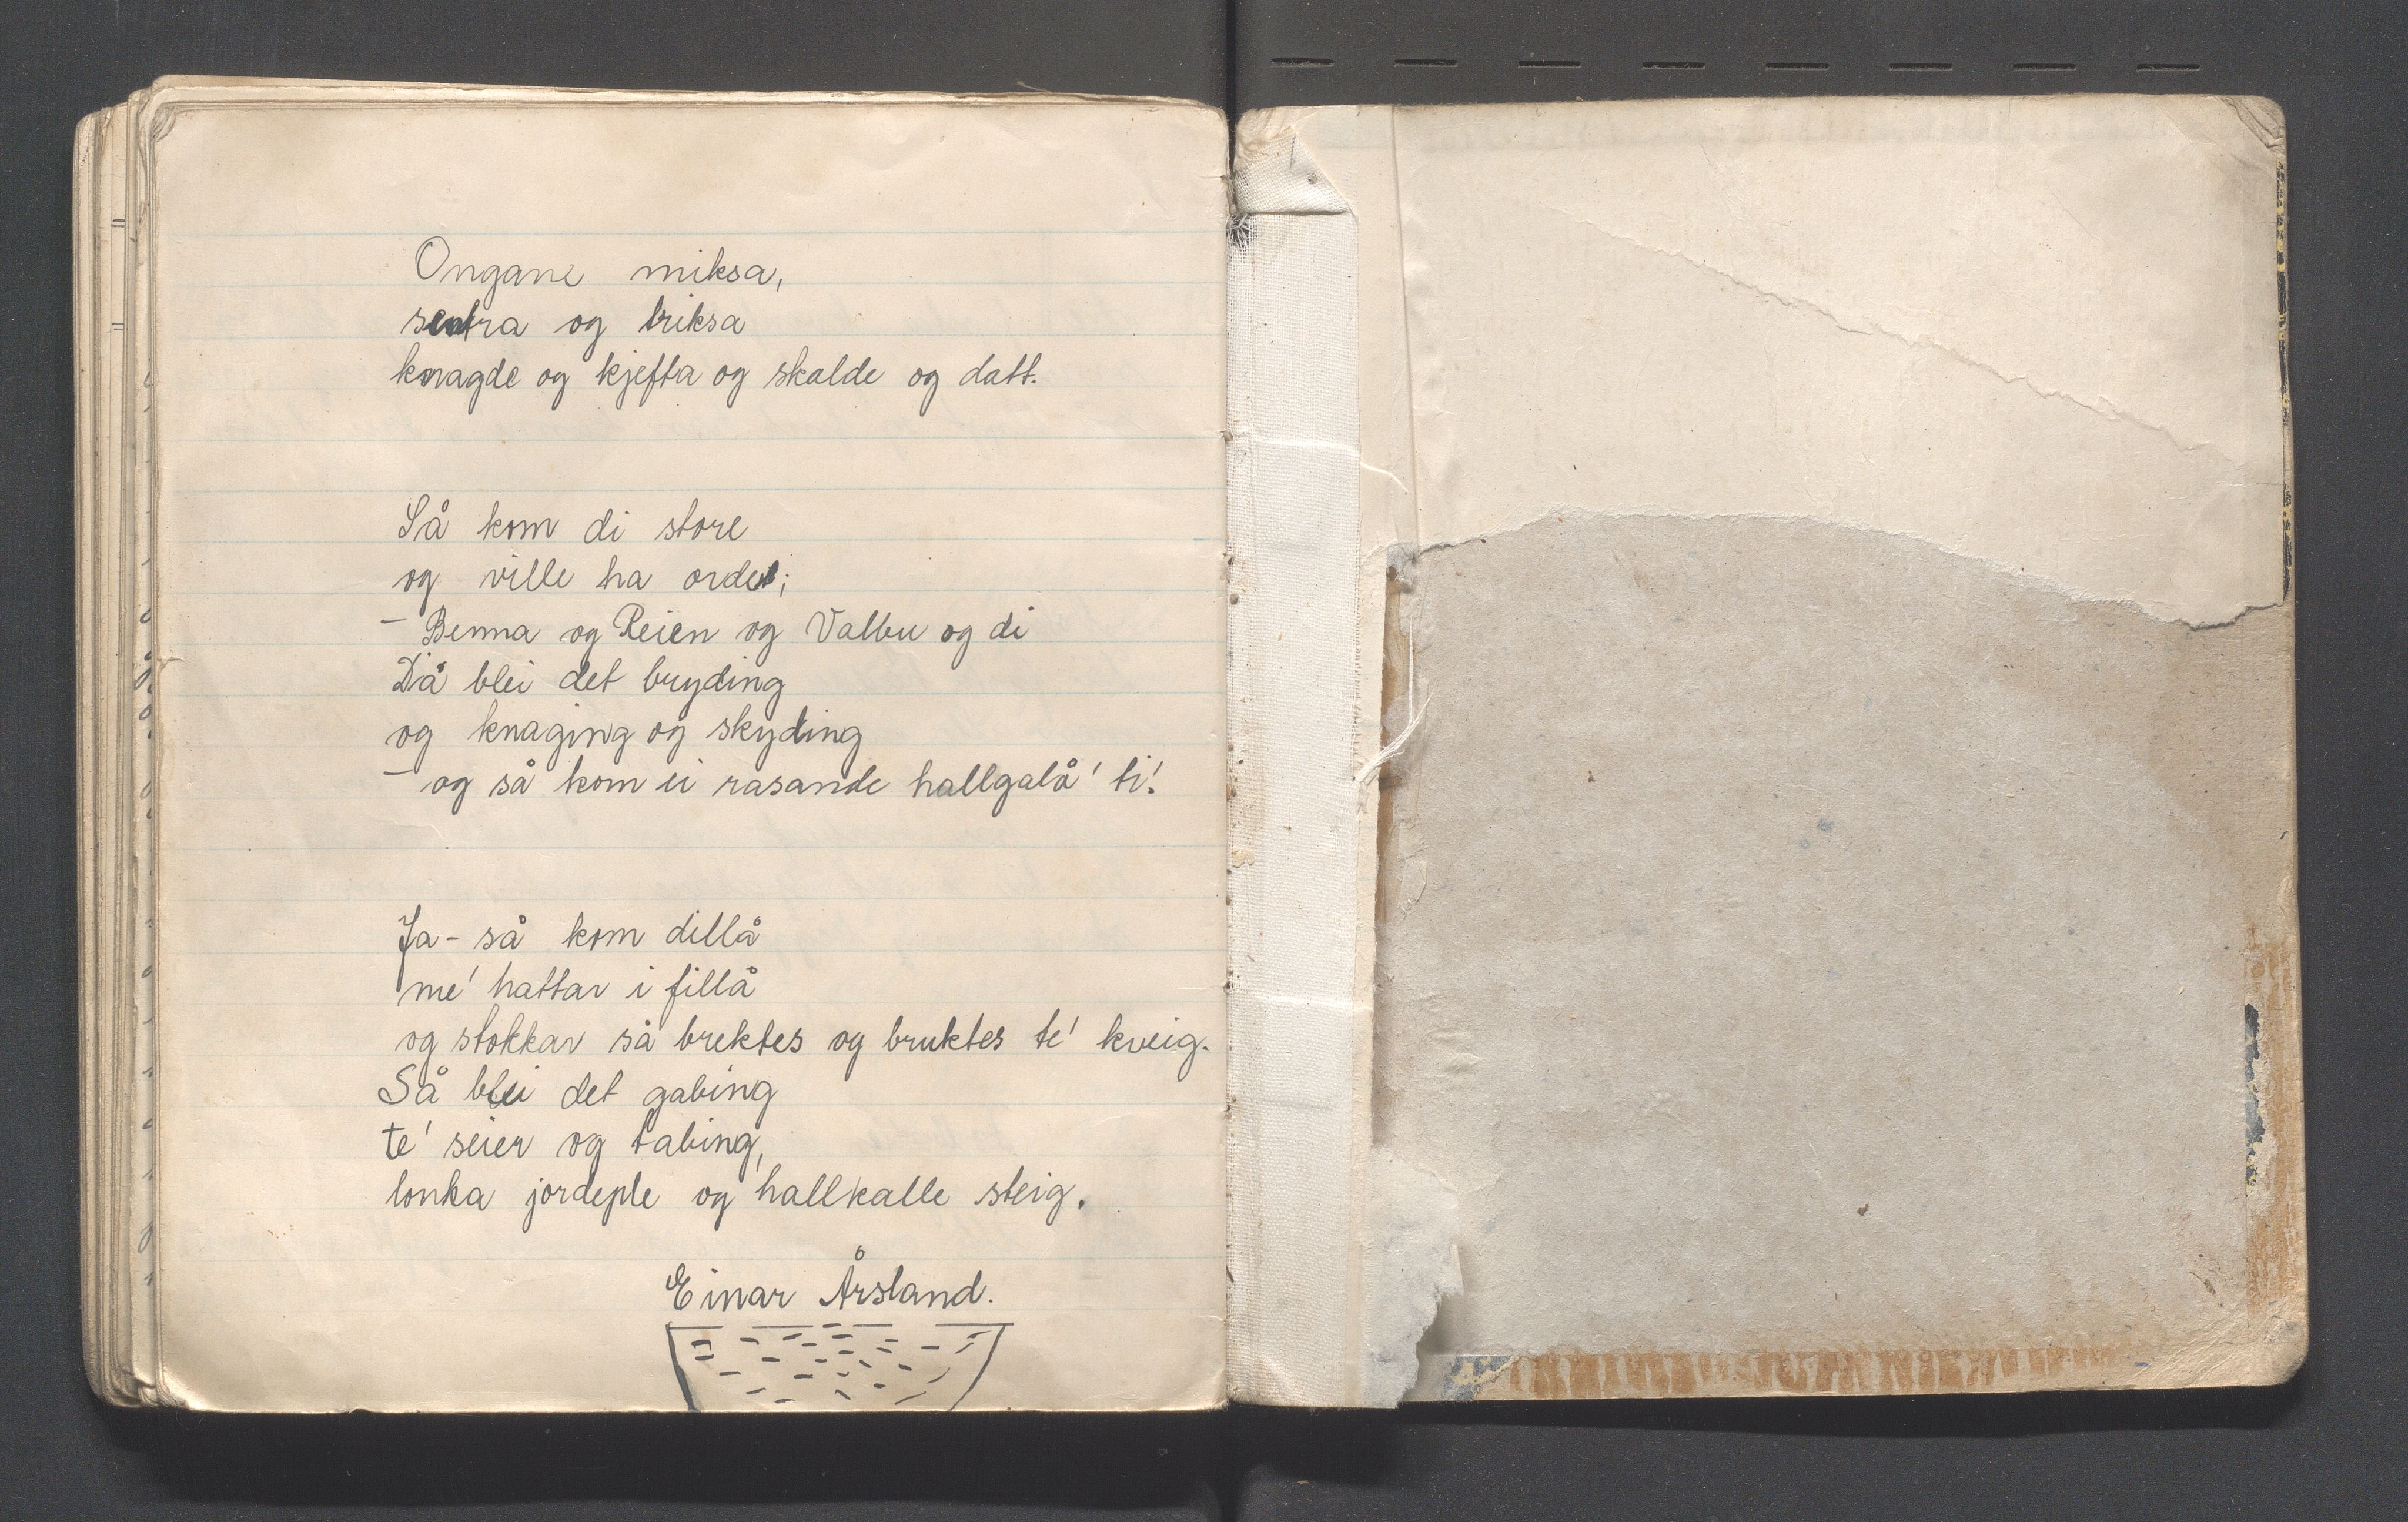 Ongane miksa,
og triksa
knagde og kjefta og skalde og datt.
Så kom di store
og ville ha ordet;
- Benna og Reien og Valbu og di
Då blei det bryding
og knaging og skyding
- og så kom ei rasande hallgalå' ti!
Ja - så kom dillå
me' hattar i fillå
og stokkar så brektes og bruktes te' kveig.
Så blei det gabing
te' seier og tabing,
lonka jordeple og hallkalle steig.
Einar Årsland.